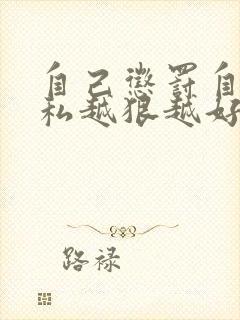 自己惩罚自
私越狠越好
路禄